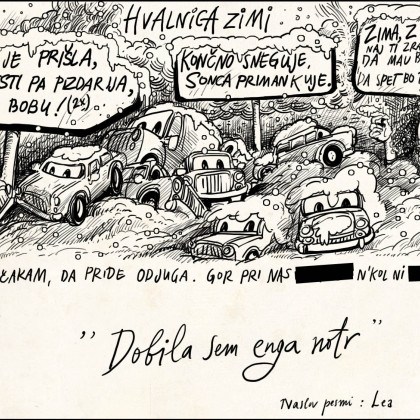 HVALNICA ZIMI
JE PRIŠLA,
STI PA PIZDARIJA,
BOBU! (2x)
KONČNO SNEGUJE,
SONCA PRIMANKUJE.
ZIMA, Z
NAJ TI ZR
DA MAU B
DA SPET BO
ČAKAM, DA PRIDE ODJUGA. GOR PRI NAS N'KOL NI
" Dobila sem enga notr "
Naslov pesmi : Lea